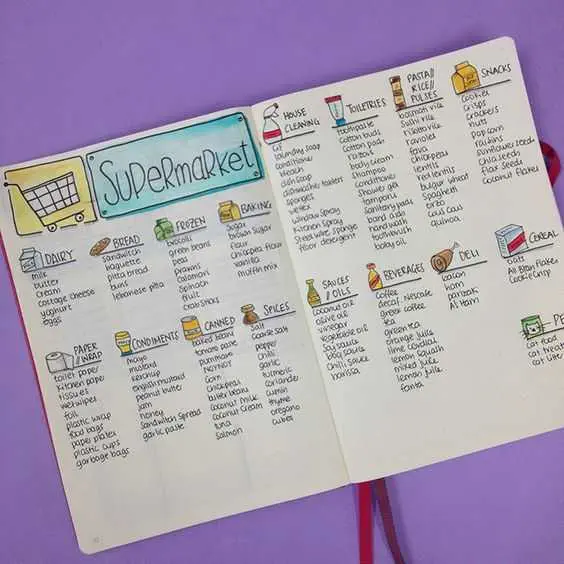 SUPERMARKET
DAIRY
milk
butter
cream
cottage cheese
yoghurt
eggs
BREAD
sandwitch
baguette
pitta bread
buns
lebanese pita
FROZEN
brocolli
green beans
peas
prawns
calamari
spinach
fruit
crabsticks
BAKING
sugar
brown sugar
flour
chickpea flour
vanilla
muffin mix
PAPER
//WRAP
toilet paper
kitchen paper
tissues
wetwipes
foil
plastic wrap
food bags
paper plates
plastic cups
garbage bags
CONDIMENTS
mayo
mustard
ketchup
english mustard
peanut butter
jam
honey
sandwitch spread
garlic paste
CANNED
baked beans
tomato paste
corn
chickpea
butter beans
coconut milk
coconut cream
tuna
salmon
SPICES
salt
coarse salt
pepper
chilli
garlic
turmeric
coriander
cumin
thyme
oregano
cubes
HOUSE
CLEANING
cif
laundry soap
conditioner
bleach
dish soap
dishwasher tablets
sponges
wettex
window spray
kitchen spray
steel wire sponge
floor detergent
TOILETRIES
toothpaste
cotton buds
cotton pads
razors
body cream
shampoo
conditioner
shower gel
tampons
sanitary pads
band aids
hand wash
toothbrush
baby oil
PASTA//
RICE//
PULSES
basmati rice
sushi rice
risotto rice
ravioles
fava
chickpeas
lentils
red lentils
bulgur wheat
spaghetti
orzo
cous cous
quinoa
SNACKS
cookies
crisps
crackers
nuts
popcorn
raisins
sunflower seeds
chia seeds
flax seeds
coconut flakes
SAUCES
//OILS
coconut oil
olive oil
vinegar
vegetable oil
soy sauce
bbq sauce
chilli sauce
harissa
BEVERAGES
coffee
decaf. nescafe
greek coffee
tea
green tea
orange juice
lime cordial
lemon squash
mixed juice
lemon juice
fanta
DELI
bacon
ham
CEREAL
oats
All Bran Flakes
Cookie Crisp
PE
cat food
cat treats
cat litte